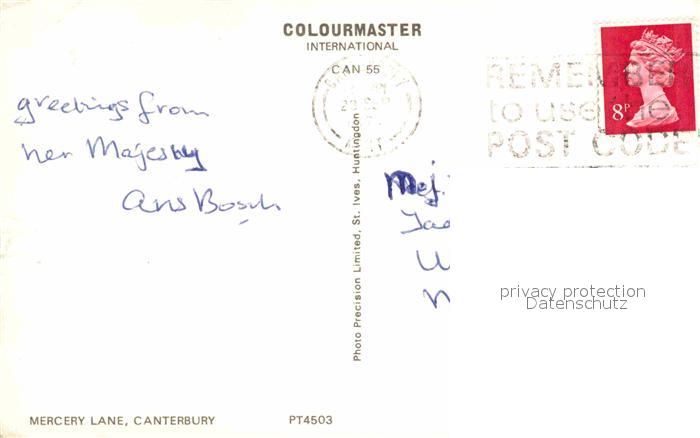 COLOURMASTER
INTERNATIONAL
CAN 55
REMEMBER
to use the
POST CODE
8P
greetings from
her Majesty
Ans Bosch
Mej.
Photo Precision Limited, St. Ives, Huntingdon
privacy protection
Datenschutz
MERCERY LANE, CANTERBURY
PT4503